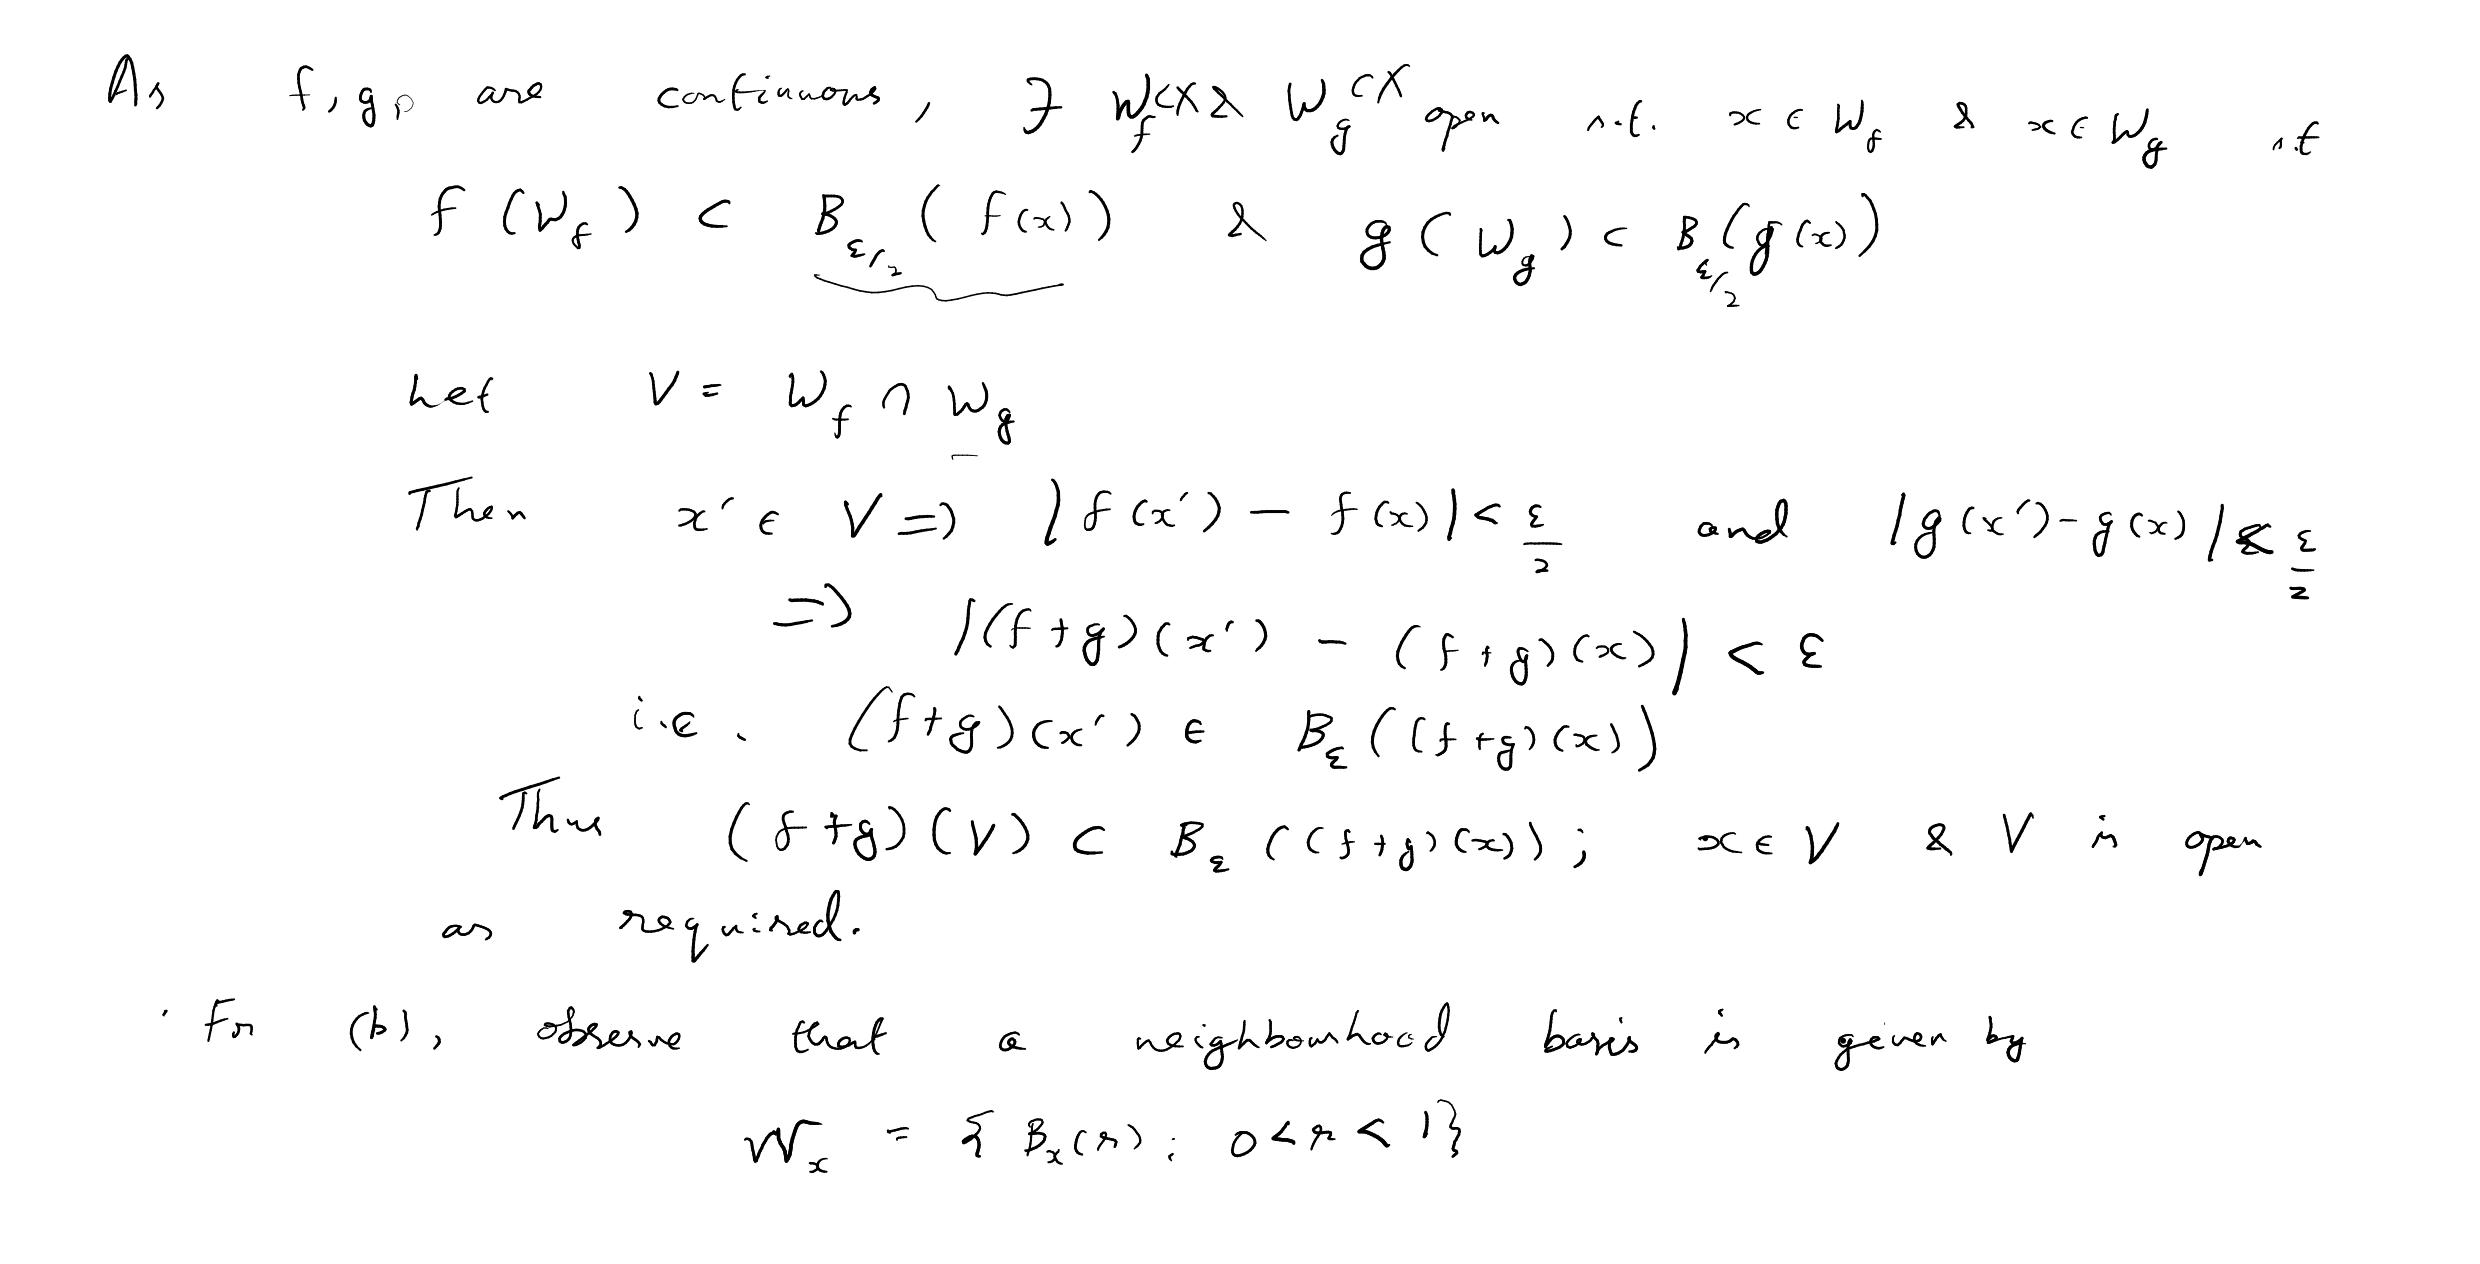 As f, g, are continuous, ∃ W_f ⊂ X & W_g ⊂ X open s.t. x ∈ W_f & x ∈ W_g s.t
f (W_f) ⊂ B_{ε/2} (f(x)) & g (W_g) ⊂ B_{ε/2} (g(x))
Let V = W_f ∩ W_g
Then x' ∈ V => |f(x') - f(x)| < ε/2 and |g(x') - g(x)| < ε/2
=> |(f+g)(x') - (f+g)(x)| < ε
i.e. (f+g)(x') ∈ B_ε ((f+g)(x))
Thus (f+g)(V) ⊂ B_ε ((f+g)(x)); x ∈ V & V is open
as required.
· For (b), observe that a neighbourhood basis is given by
W_x = { B_x(r) : 0 < r < 1}